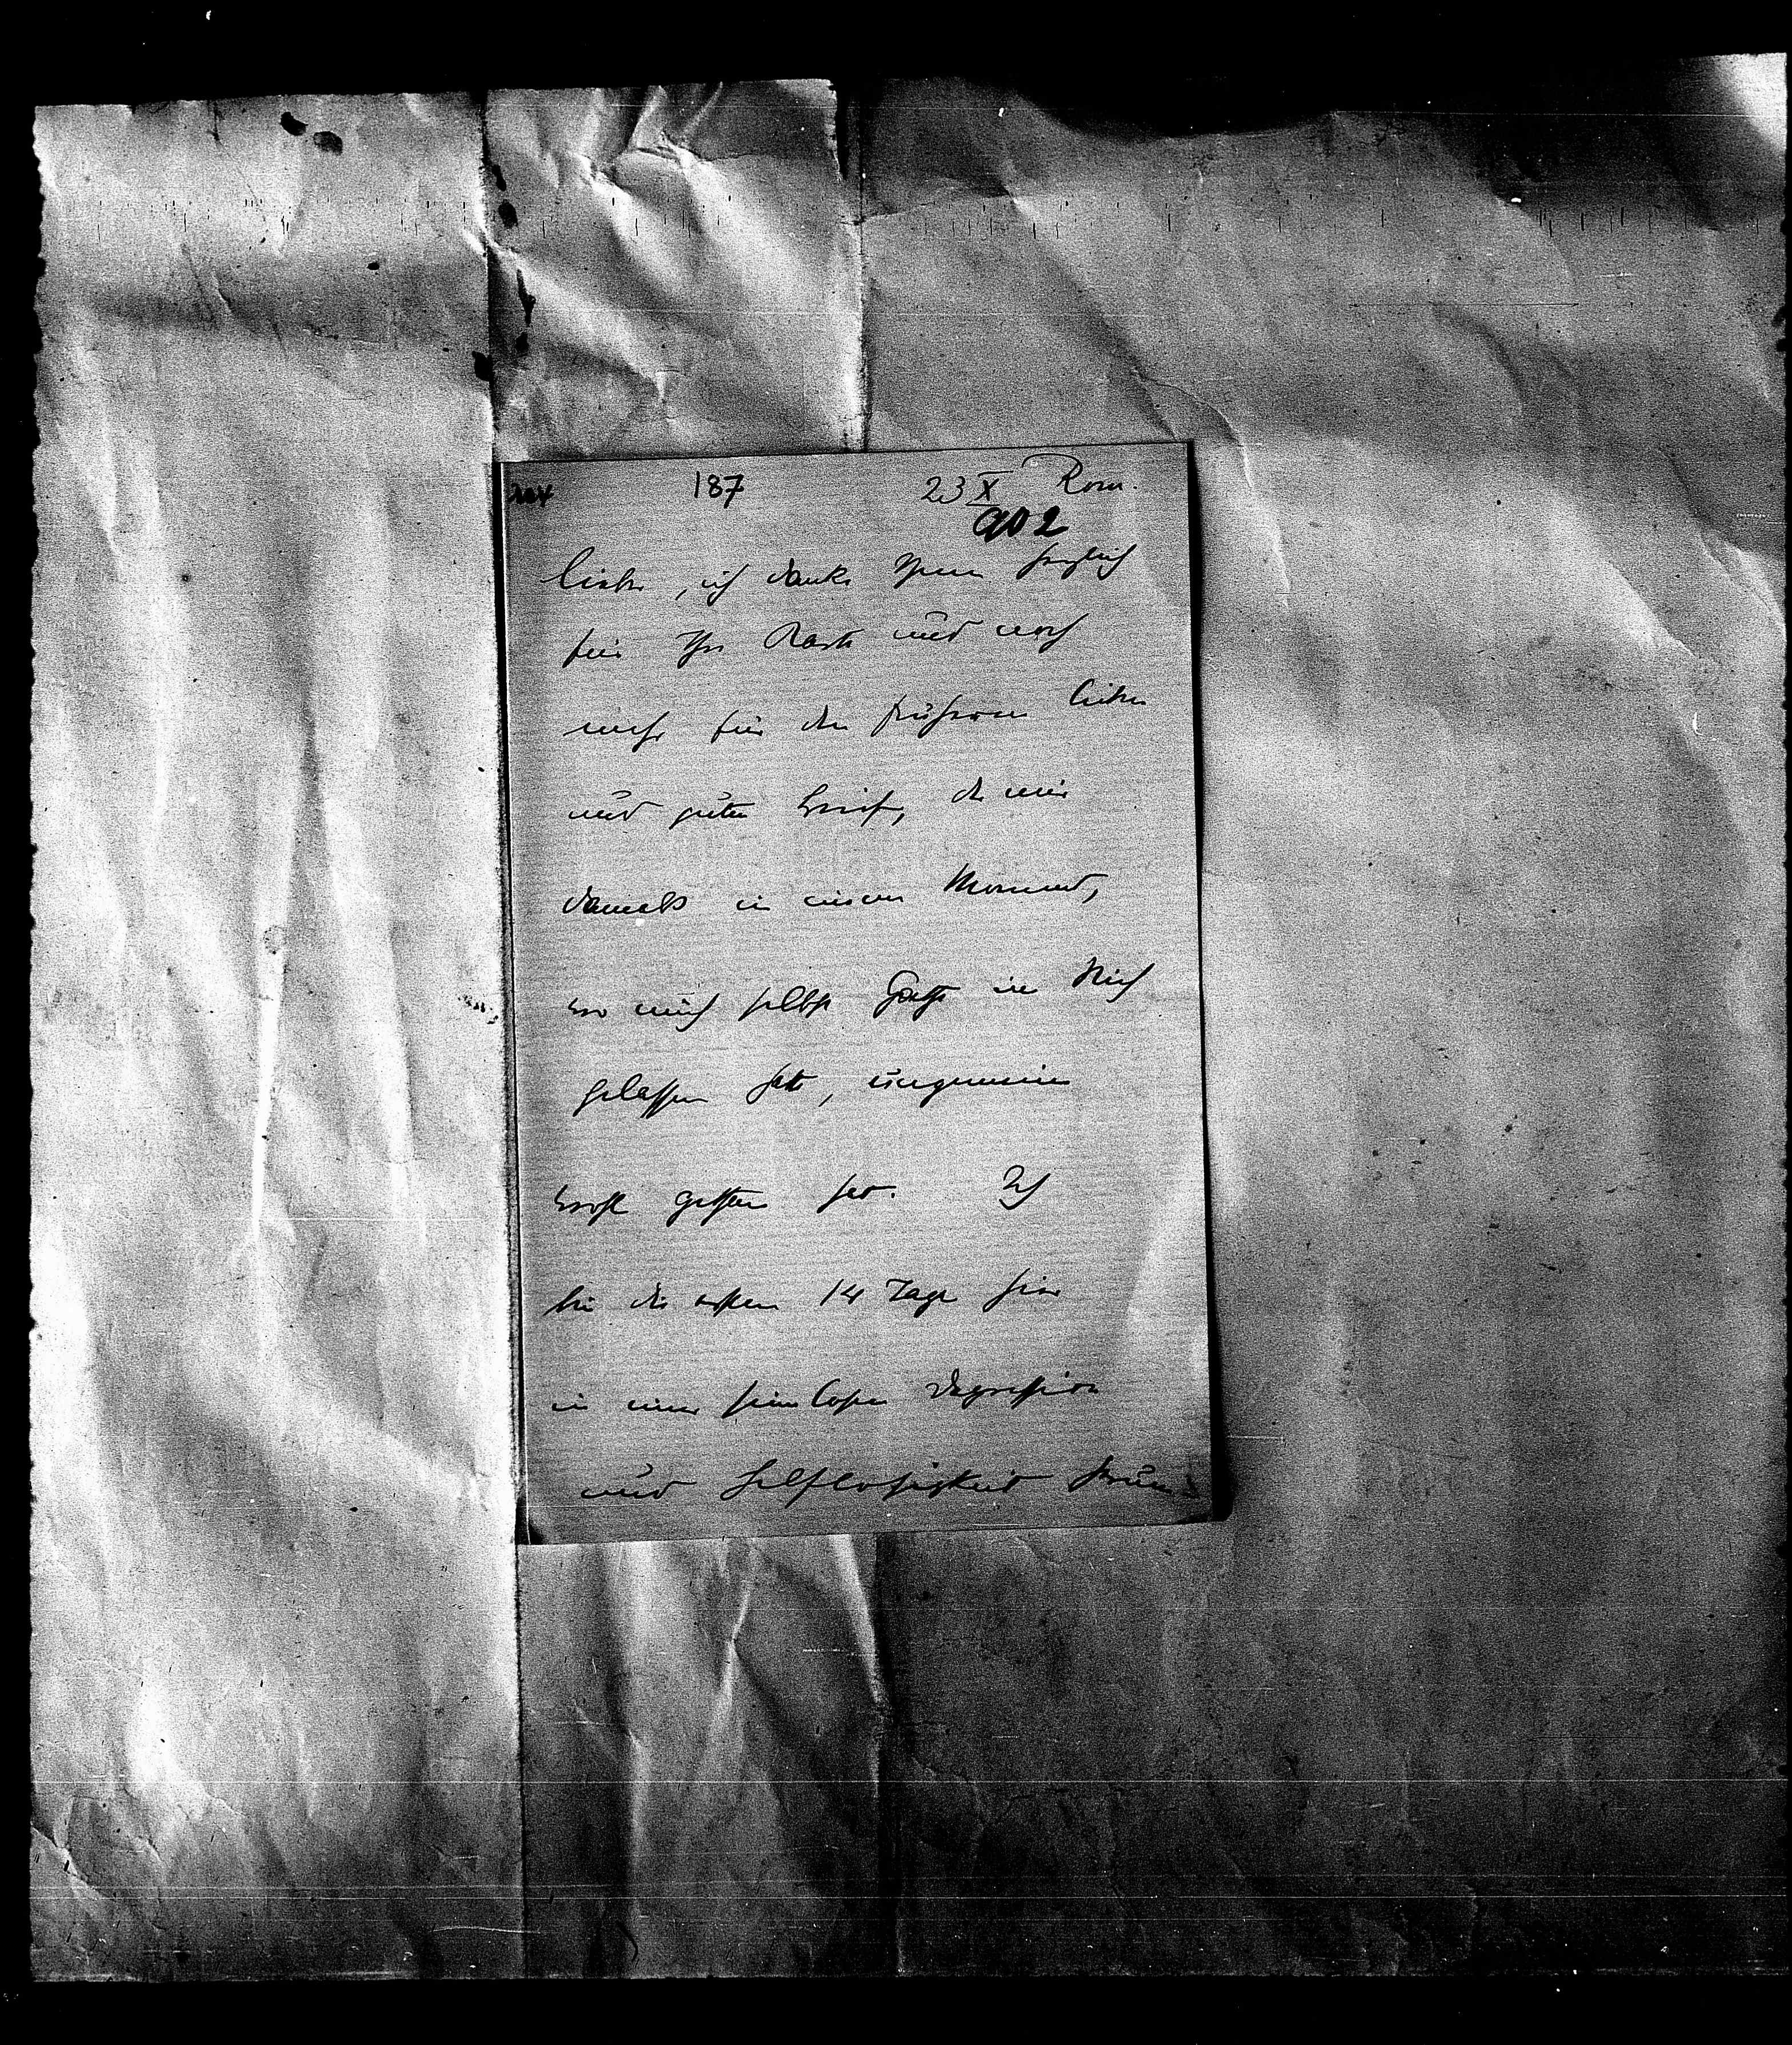 187 23 X Rom.
902
lieber, ich danke Ihnen herzlich
für Ihre Karte und noch
mehr für den früheren lieben
und guten Brief, der mir
damals in einem Moment,
wo mich selbst Goethe im Stich
gelassen hatte, ungemein
wohl gethan hat. Ich
bin die ersten 14 Tage hier
in einer sinnlosen Depression
und Hilflosigkeit herum-